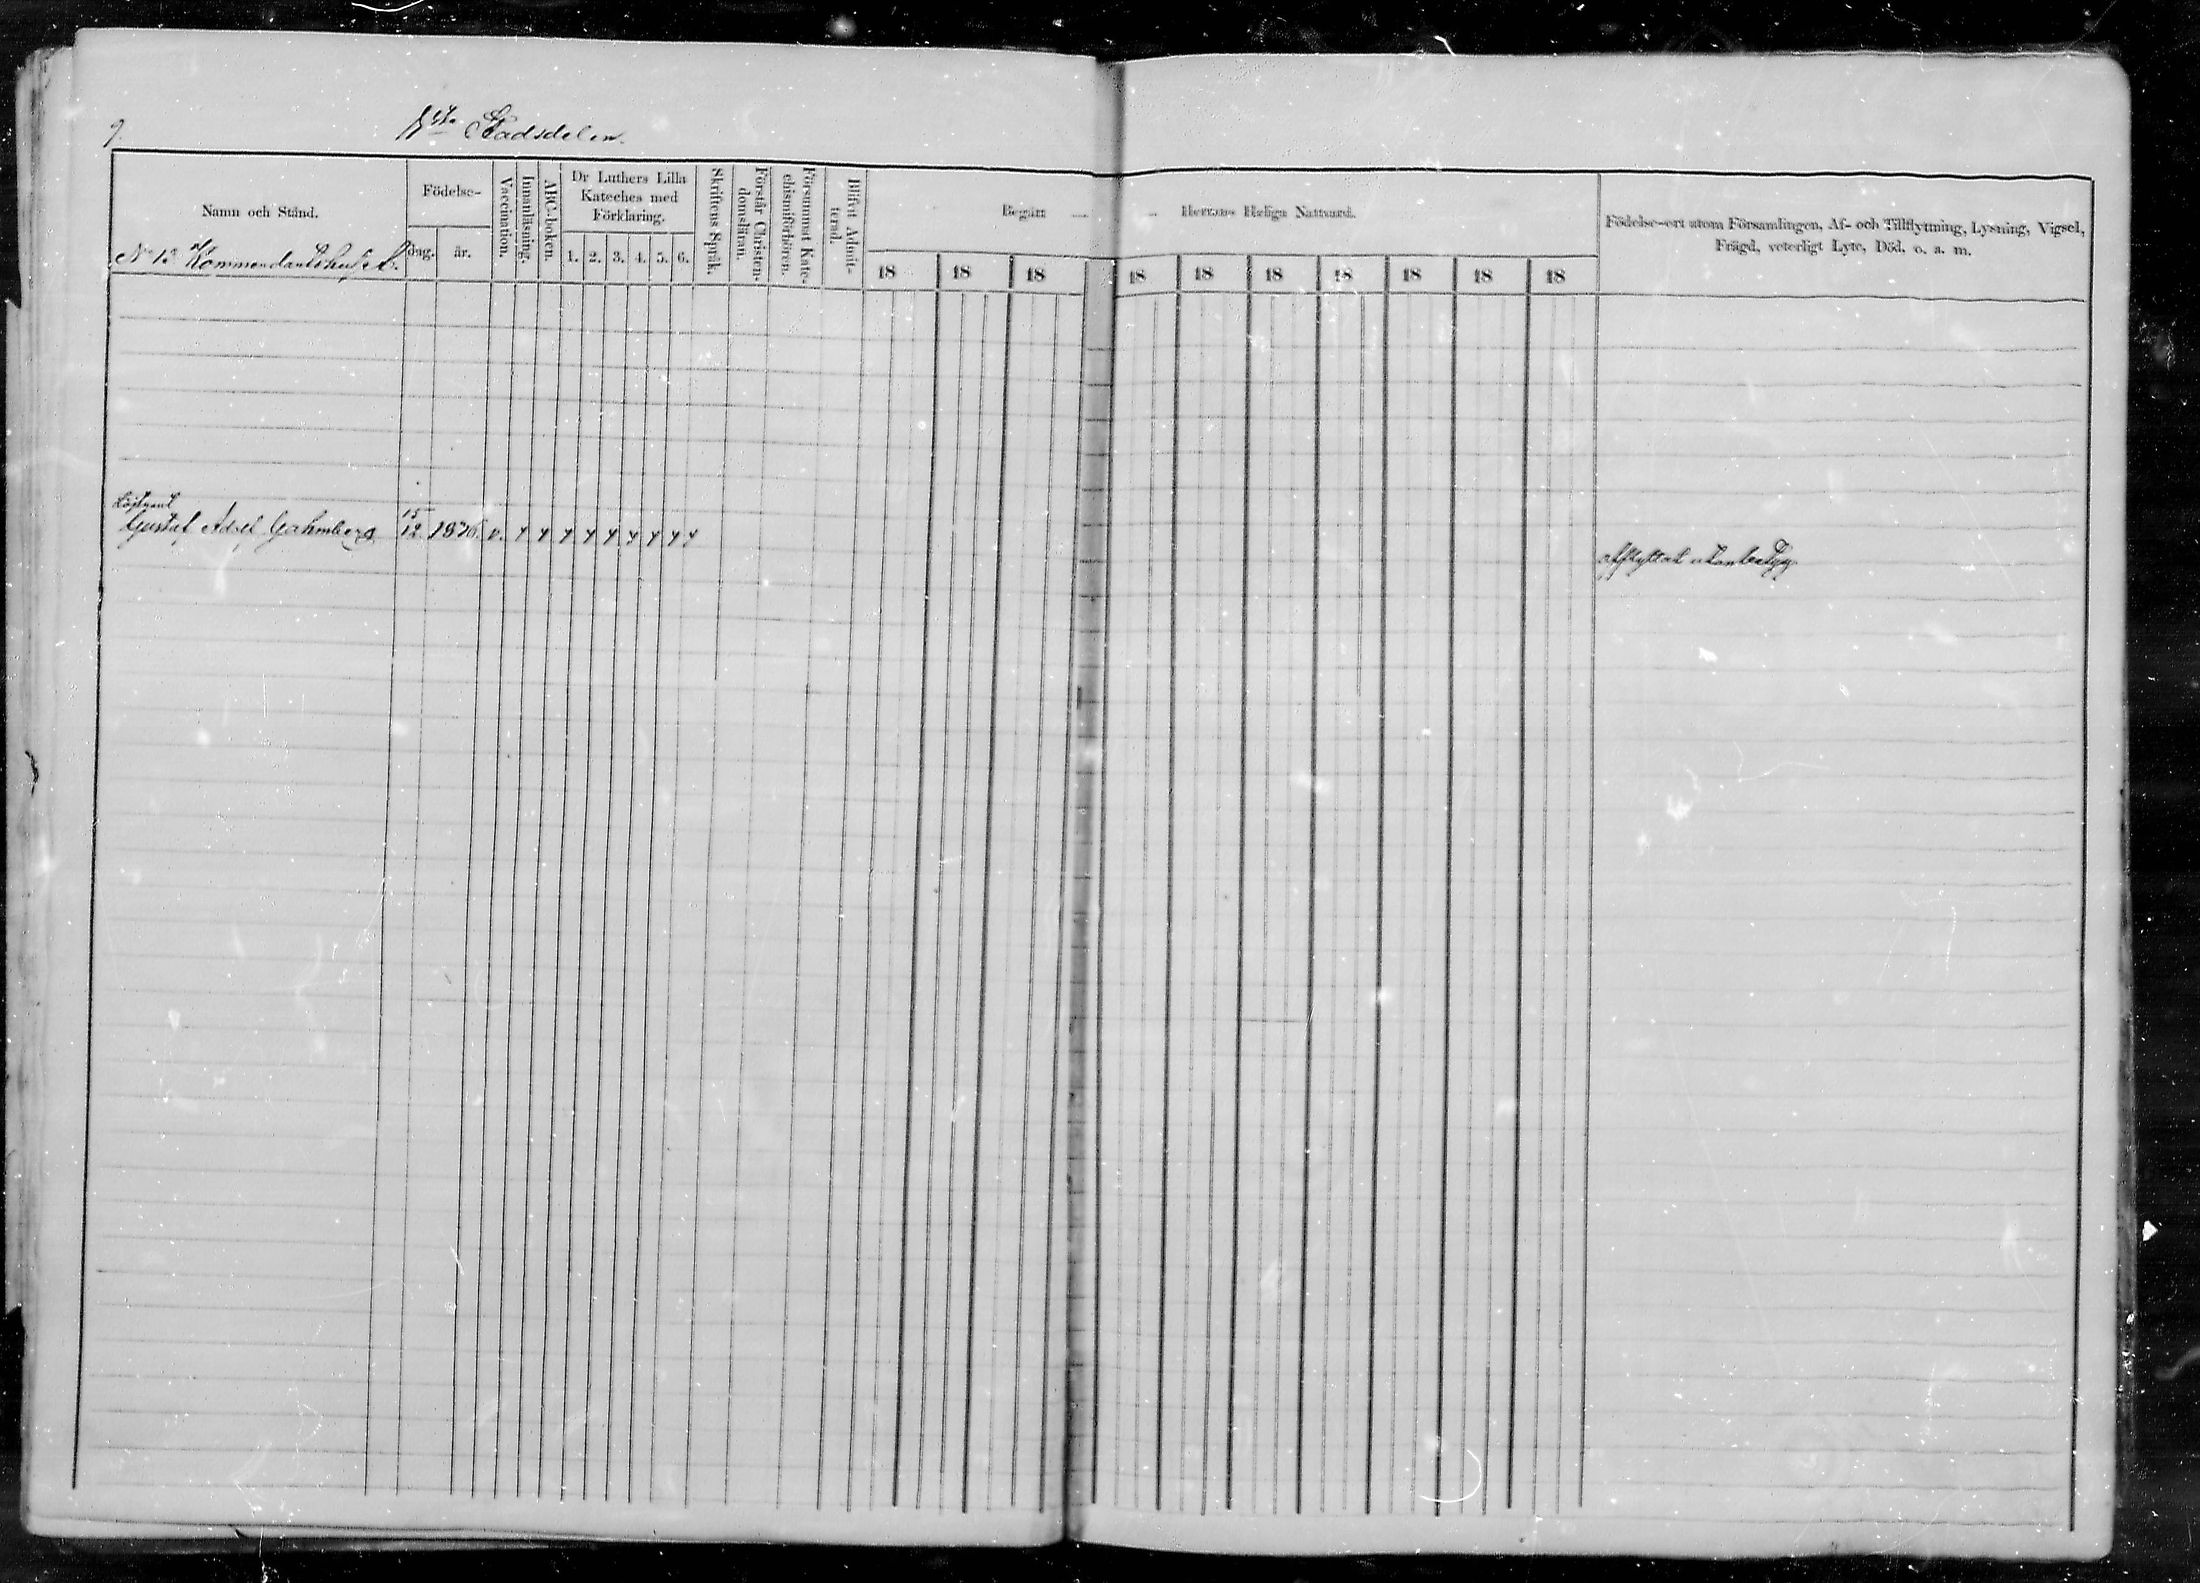 9.
1sta Stadsdelen.
Namn och Stånd.
No 13 Kommendantshuset.
Födelse-
dag. år.
Vaccination.
Innanläsning.
ABC-boken.
Dr Luthers Lilla
Kateches med
Förklaring.
1. 2. 3. 4. 5. 6.
Skriftens Språk.
Förstår Christen-
domsläran.
Försummat Kate-
chismiförhören.
Blifvit Admit-
terad.
Begått
Herrans Heliga Nattvard.
18 18 18 18 18 18 18 18 18 18
Födelse-ort utom Församlingen, Af- och Tillflyttning, Lysning, Vigsel,
Frägd, veterligt Lyte, Död, o. a. m.
Löjtnant
Gustaf Gahmberg 15/12 v.
afflyttat utan betyg